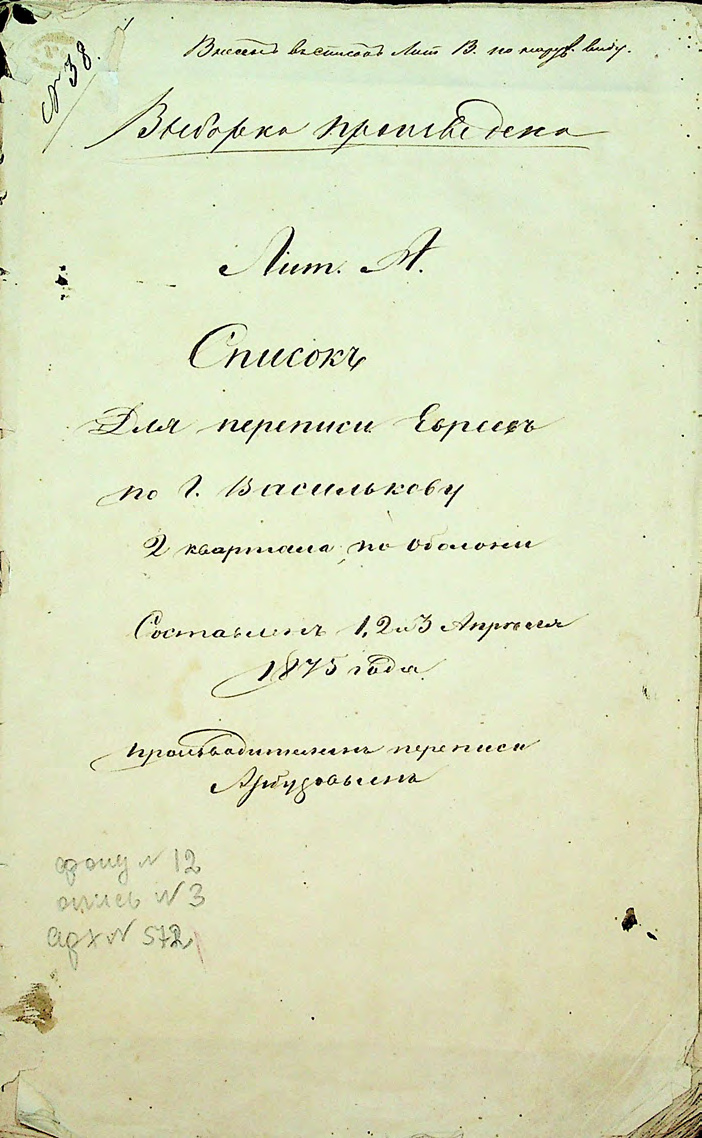 № 38.
Внесенъ въ списокъ Лит В. по наруж. виду.
Выборка произведена
Лит. А.
Списокъ
Для переписи Евреевъ
по г. Василькову
2 квартала, по оболони
Составленъ 1, 2 и 3 Апрѣля
1875 года
производителемъ переписи
фонд № 12
опись № 3
арх № 572